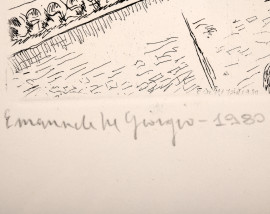 Emanuele Di Giorgio - 1980